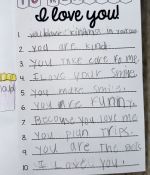 I love you!
1. you
2. You are kind.
3. You take care to me.
4. I Love your Smile.
5. You make smile.
6. you are funny.
7. Because you love me
8. You plan Trips.
9. you are The
10. I Love you!